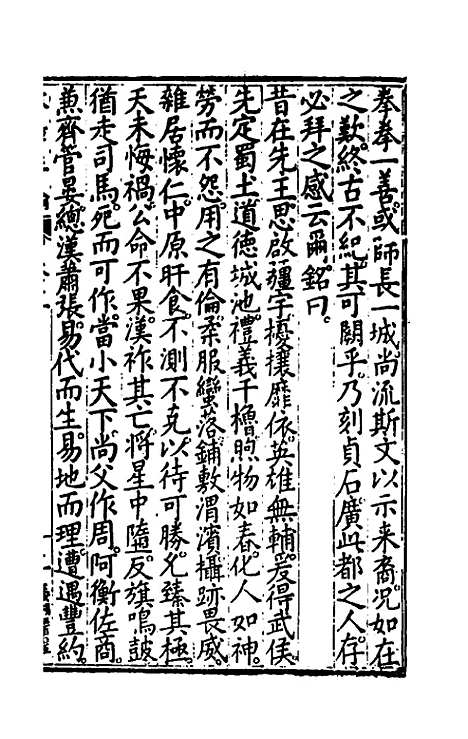 拳拳一善。或師長一城尚流斯文以示来裔况如在
之歎終古不紀其可闕乎乃刻貞石廣此都之人存
必拜之感云爾銘曰。
昔在先王思啟疆宇擾攘靡依英雄無輔爰得武侯
先定蜀土道徳城池禮義干櫓煦物如春。化人如神。
勞而不怨用之有倫柔服蠻落鋪敷渭濱攝跡畏威。
雜居懷仁。中原旰食。不測不克。以待可勝。允臻其極。
天未悔禍。公命不果漢祚其亡將星中隕。反旗鳴鼓
猶走司馬。死而可作。當小天下尚父作周。阿衡佐商。
兼齊管晏總漢蕭張。易代而生。易地而理。遭遇豐約。